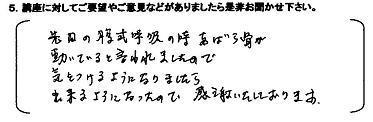 5. 講座に対してご要望やご意見などがありましたら是非お聞かせ下さい。
先日の腹式呼吸の時あばら骨が
動いていると言われましたので
気をつけるようになりましたら
出来るようになったので 感謝いたしております。